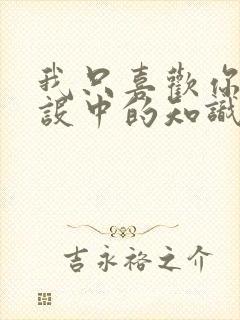 我只喜歡你
設中的知識
吉永裕之介